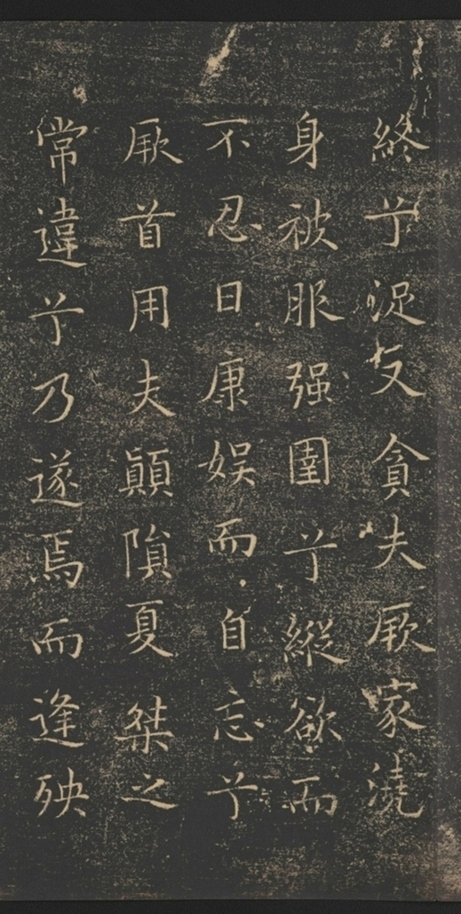 終兮浞又貪夫厥家澆
身被服强圉兮縱欲而
不忍日康娱而自忘兮
厥首用夫顛隕夏桀之
常違兮乃遂焉而逢殃